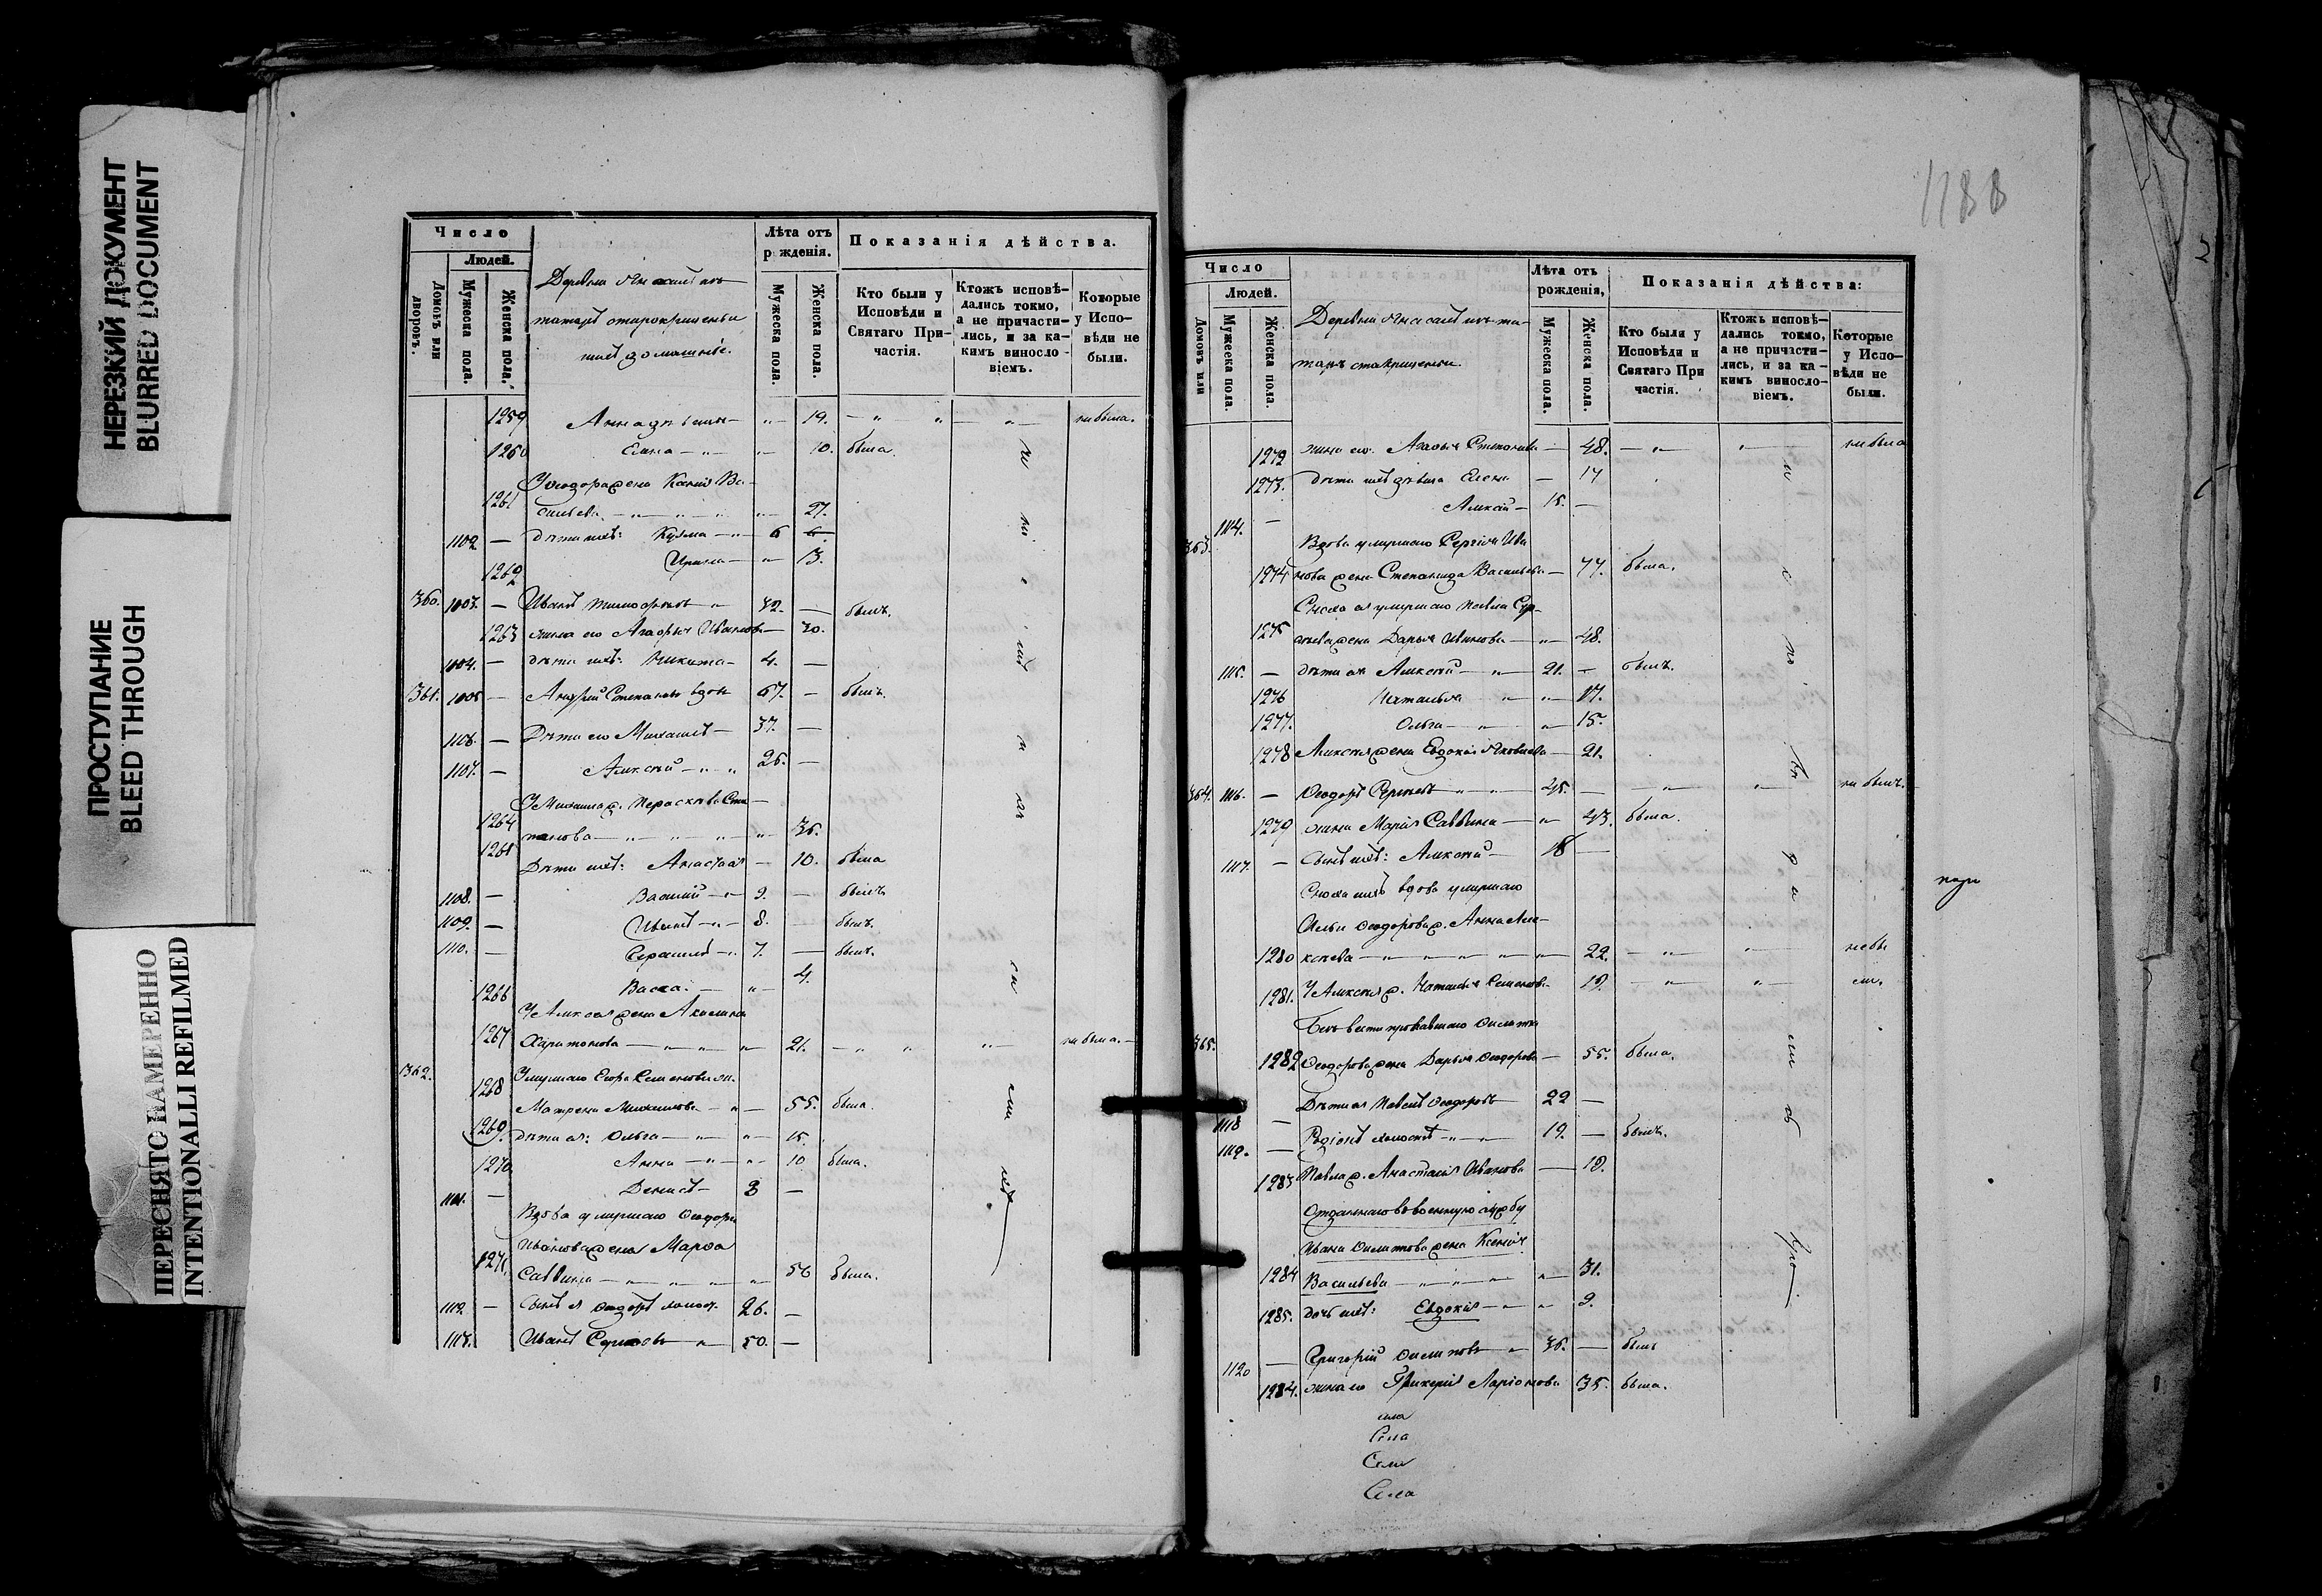 НЕРЕЗКИЙ ДОКУМЕНТ
BLURRED DOCUMENT
ПРОСТУПАНИЕ
BLEED THROUGH
ПЕРЕСНЯТО НАМЕРЕННО
INTENTIONALLI REFILMED
Число
Людей.
Домовъ или дворовъ.
Мужеска пола.
Женска пола.
Деревни
татаръ старокрещены
ихъ домашніе.
Лѣта отъ р ждения.
Мужеска пола.
Женска пола.
Показанія дѣйства.
Кто были у Исповѣди и Святаго Причастія.
Ктожъ исповѣдались токмо, а не причастились, и за какимъ винословіемъ.
Которые у Исповѣди не были.
1259 Анна 19. не была.
1260 Елена 10. была.
У Ѳеодора жена Ксенія Ва-
1261 сильева 27.
1102 — дѣти ихъ: Козма 6
1262 Ирина — 13.
360. 1103. — Иванъ 32. — былъ.
1263 жена его Агафья Иванова 30.
1104. — дѣти ихъ: Никита 4. —
361. 1105 — Андрей Степановъ вдовъ 67. — былъ.
1106. — Дѣти его Михаилъ 37. —
1107. — Алексѣй 26. —
У Михаила ж. Параскева Сте-
1264 панова 36.
1265 Дѣти ихъ: Анастасія — 10. была
1108. — Василій 9. — былъ
1109. — Иванъ 8. — былъ.
1110. — Герасимъ 7. — былъ.
1266 Васса 4.
У Алексѣя жена Акилина
1267 Харитонова 21. не была.
362. Умершаго Егора Семенова ж.
1268 Матрена Михаилова 55. была.
1269. дѣти ея: Ольга 15.
1270 Анна 10 была.
1111. — Денисъ 8 —
Вдова умершаго Ѳеодора
Иванова жена Марѳа
1271. Саввина 56 была.
1112 — Сынъ ея Ѳеодоръ холост. 26. —
1113. Иванъ Сергѣевъ 50. —
1188
Число
Людей.
Домовъ или
Мужеска пола.
Женска пола.
Деревни
таръ старокрещены.
Лѣта отъ рожденія,
Мужеска пола.
Женска пола.
Показанія дѣйства:
Кто были у Исповѣди и Святаго При частія.
Ктожъ исповѣдались токмо, а не причастились, и за какимъ винословіемъ.
Которые у Исповѣди не были.
1272 жена его Агафья Степанова 48. не была
1273. Дѣти ихъ дѣвица Елена — 17
1114. — Алексѣй 15. —
363. Вдова умершаго Сергѣя Ива
1274 нова жена Степанида Васильева — 77. была.
Сноха ея умершаго Павла Сер-
1275 гѣева жена Дарья Иванова 48.
1115. — дѣти ея Алексѣй 21. — былъ.
1276 Наталья 17.
1277. Ольга 15.
1278 Алексѣя жена Евдокія Яковлева — 21.
364. 1116. — Ѳеодоръ Сергѣевъ 45. — не былъ.
1279 жена Марія Саввина 43. была.
1117. — Сынъ ихъ: Алексѣй 18 —
Сноха ихъ вдова умершаго
Ильи Ѳеодорова ж. Анна Але-
1280 ксѣева 22. не бы
1281. У Алексѣя ж. Наталья Семенова 19. ли.
365. Безъ вѣсти пропавшаго Филиппа
1282 Ѳеодорова жена Дарья Ѳеодорова — 55. была.
1118 — Дѣти ея Павелъ Ѳеодоровъ 22 —
1119. — Родіонъ холостъ 19. — былъ.
1283 Павла ж. Анастасія Иванова — 19.
Отданнаго въ военную службу
Ивана Филиппова жена Ксенія
1284 Васильева 31.
1285. дочь ихъ: Евдокія 9.
1120 — Григорій Филиповъ 36. — былъ
1284. жена его Гликерія Ларіонова 35. была.
ела
Села
Села
Села